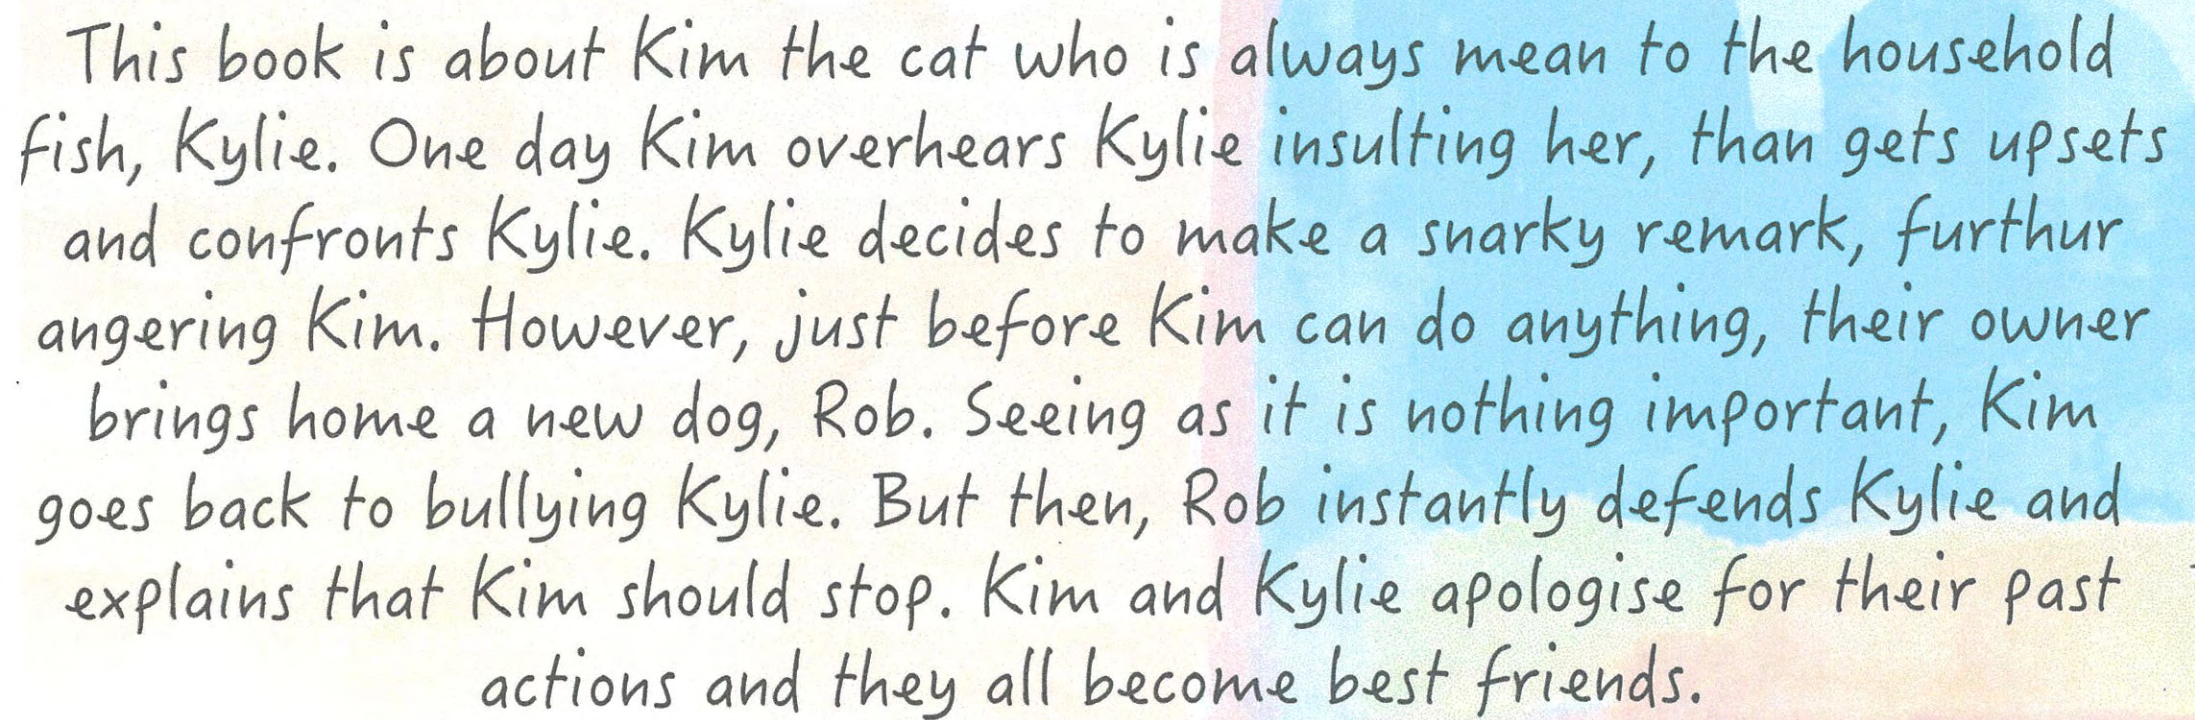 This book is about Kim the cat who is always mean to the household
fish, Kylie. One day Kim overhears Kylie insulting her, than gets upsets
and confronts Kylie. Kylie decides to make a snarky remark, furthur
angering Kim. However, just before Kim can do anything, their owner
brings home a new dog, Rob. Seeing as it is nothing important, Kim
goes back to bullying Kylie. But then, Rob instantly defends Kylie and
explains that Kim should stop. Kim and Kylie apologise for their past
actions and they all become best friends.